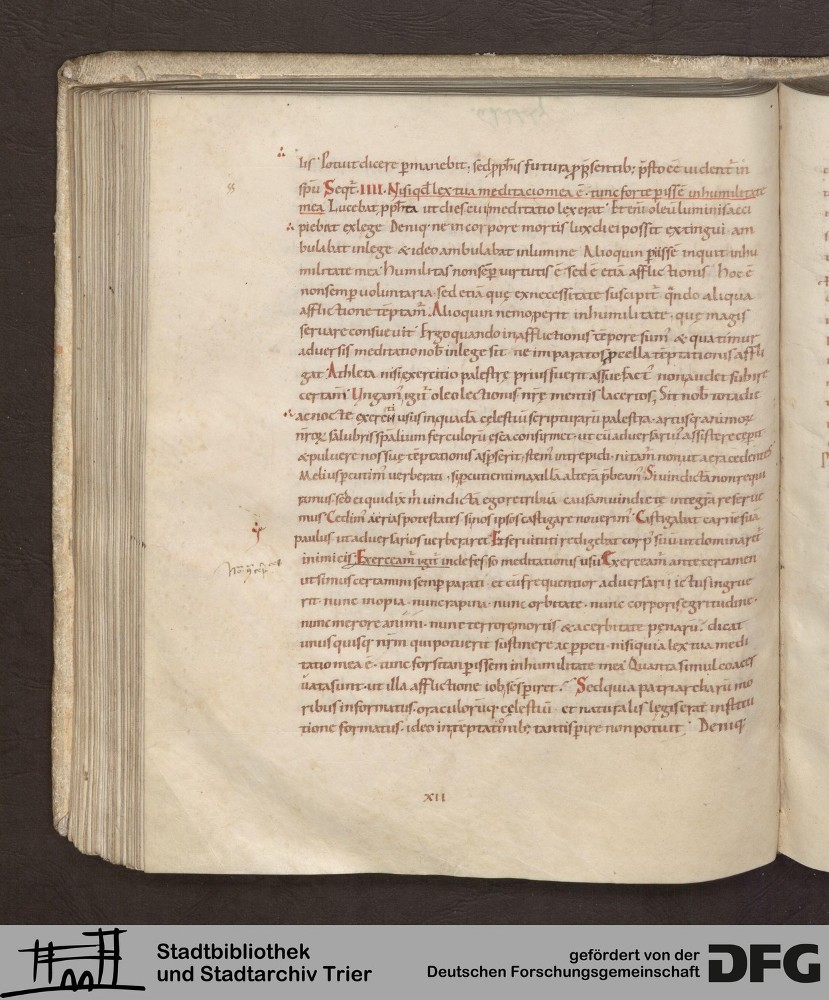 lis' Potuit dicere pmanebit, sed pphis futura p psentib; psto ee videnť in
spū Seqť. IIII. Nisi qd lex tua meditatio mea ē. tunc forte pissē in humilitate
mea Lucebat, ppħta ut dies cui meditatio lex erat. Eteni oleū luminis acci
piebat ex lege Deniq; ne in corpore mortis lux diei possit extingui. am
bulabat in lege & ideo ambulabat in lumine Alioquin piissē inquit in hu
militate mea humilitas non semp virtutis ē sed ē etiā afflictionis Hoc ē
non semp voluntaria. sed etiā quę ex necessitate suscipit qndo aliqua
afflictione teptam. Alioquin nemo perit in humilitate, quę magis
servare consuevit Ergo quando in afflictionis tēpore sum & quatimur
adversis meditatio nob in lege sit. ne imparatos pcella teptationis affli
gat Athleta nisi exercitio palestrę prius fuerit assuefact non audet subire
certam Ungam igit oleo lectionis nrę mentis lacertos, Sit nob tota die
ac nocte exercitii usus in quada celestiū scripturarū palestra. artusq; animoꝝ
nroꝝ salubris spalium ferculorū esca confirmet. ut cū adversarius assistere ceperit
& pulvere nos suę teptationis aspserit, stem intrepidi.
Melius pcutim verberati. si pcutienti maxillā alterā pbeam Si vindictā non requi
ramus. sed ei qui dix m vindictā ego retribuā causam vindictę integrā reserve
mus Cedim aerias potestates si nos ipsos castigare noverim Castigabat carnē suā
paulus ut adversarios verberaret Et servituti redigebat corp suū ut dominaret
inimicis. Exerceam igit indefesso meditationis usu Exerceam ante certamen
ut simus certamini semp parati. et cū frequentior adversarii ictus ingrue
rit. nunc inopia. nunc rapina. nunc orbitate. nunc corporis egritudine.
nunc merore animi. nunc terrore mortis & acerbitate penarū. dicat
unusquisq; nrm qui potuerit sustinere ac ppeti. nisi quia lex tua medi
tatio mea ē. tunc forsitan pissem in humilitate mea Quanta simul coacer
vata sunt. ut illa afflictione iob se spiret. Sed quia patriarcharū mo
ribus informatus. oraculorūq; cęlestiū et naturalis legis erat institu
tione formatus. ideo in teptationib; tantis pire non potuit. Deniq;
XII
Stadtbibliothek
und Stadtarchiv Trier
gefördert von der
Deutschen Forschungsgemeinschaft
DFG